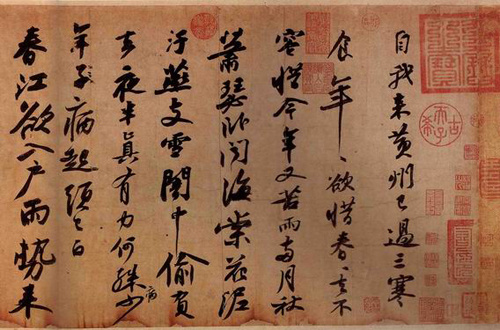 自我来黄州已過三寒
食年〻欲惜春〻去不
容惜今年又苦雨兩月秋
蕭瑟卧聞海棠花泥
汙燕支雪闇中偷負
去夜半真有力何殊病少
年子病起須已白
春江欲入戶雨勢来
古希天子